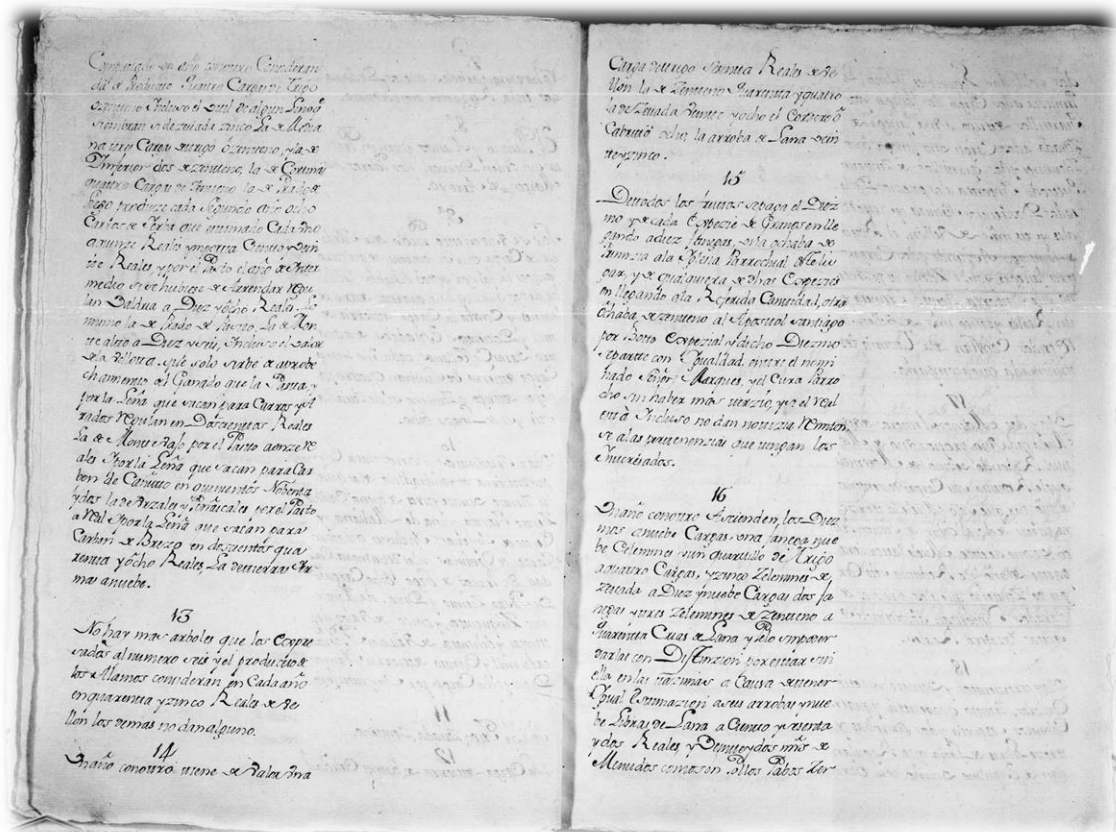 Compensado un año con otro Consideran
de Producto quatro Cargas de trigo
Senbran de zevada zinco La de Media
na tres Cargas de trigo o zenteno, y la de
Ynferior dos de zenteno, la de
quatro Cargas de la de Prado de
produze cada Segundo año ocho
Carros de Yerba que Cada Uno
a veinte Reales ymporta Ciento y Sesen
Reales, y por el Pasto el año de Ynter
medio si se hubiese de Arrendar Regu
lan Valdria a Diez y ocho Reales, Lo
mismo la de Prado de Pasto, La de Mon
te alto a Diez y Incluso el Valor
de la Vellota, que solo sirbe de aprobe
chamiento al Ganado que la Pasta, y
por la Leña que sacan para Carros y A
rados Regulan en Doscientos Reales
La de Monte Bajo, por el Pasto a onze Re
ales Y por la Leña que sacan para Car
bon de Canuto en quinientos Nobenta
y dos la de Arzales y por el Pasto
a Real Y por la Leña que sacan para
Carbon de Brezo en doszientos qua
renta y ocho Reales, La de tierras Yer
mas a nuebe.
13
No hay mas arboles que los Expre
sados al numero seis y el producto de
los Alamos consideran en Cada año
en quarenta y zinco Reales de Ve
llon los demas no dan alguno.
14
Un año con otro tiene de Valor Una
Carga de trigo Sesenta Reales de Ve
llon la de Zenteno quarenta y quatro
la de Zevada Veinte y ocho el Cordero o
Cabrito ocho, la arroba de Lana Vein
te y zinco.
15
De todos los frutos se paga el Diez
mo y de cada Espezie de Granos en lle
gando a diez fanegas, Una ochaba de
Primizia a la Iglesia Parrochial de
par, y de qualquiera de dhas Espezies
en llegando a la Referida Cantidad, otra
ochaba, de zenteno al Apostol Santiago
por Boto Espezial y dicho Diezmo
se parte con Ygualdad entre el nomi
nado Señor Marques, y el Cura Parro
cho sin haber mas terzio, y
Incluso no dan notizia Remitien
se a las pertenenzias que tengan los
Interesados.
16
Un año con otro Aszienden, los Diez
mos a nuebe Cargas, Una fanega nue
be Celemines y un quartillo de Trigo
a quatro Cargas, y zinco Zelemines de
zevada a Diez y nuebe Cargas dos fa
negas y tres Zelemines de Zenteno a
quarenta de Lana y Pelo sin poder
darlas con Distinzion por estar sin
ella en las tazmias a Causa de tener
Ygual Estimazion a seis arrobas y nue
be Libras de Lana a Ciento y
y dos Reales, y Veinte y dos mrs de
Menudos como son Pollos Pabos Zer